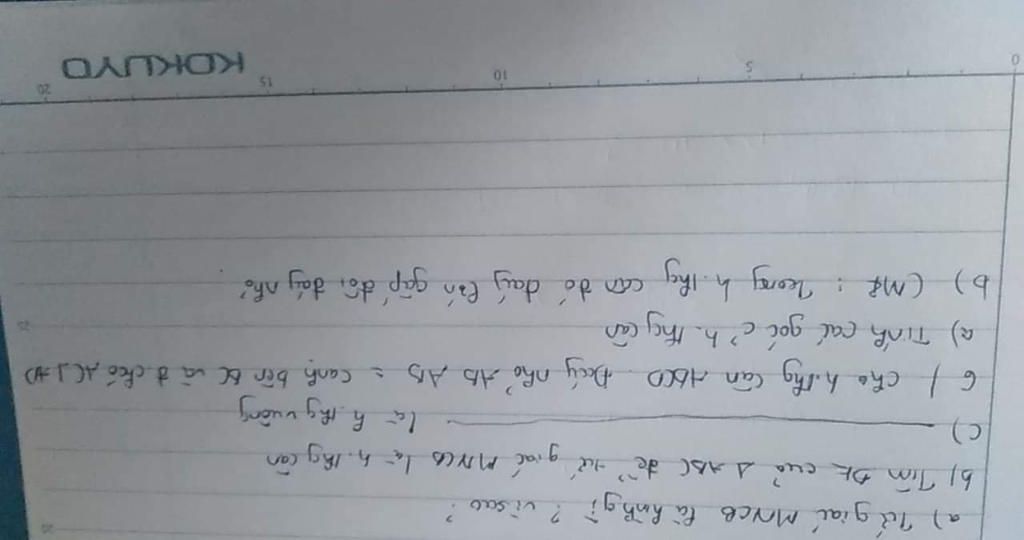 a) Tứ giác MNCB là hình gì ? vì sao ?
b) Tìm ĐK của Δ ABC để tứ giác MNCB là h. thg cân
c) ——— là h. thg vuông
6 / cho h. thg cân ABCD. Đáy nhỏ AB = cạnh bên BC và đ chéo AC ⊥ AD
a) Tính các góc c² h. thg cân
b) CMR : Trong h. thg cân đó đáy lớn gấp đôi đáy nhỏ.
0 5 10 15 20
KOKUYO